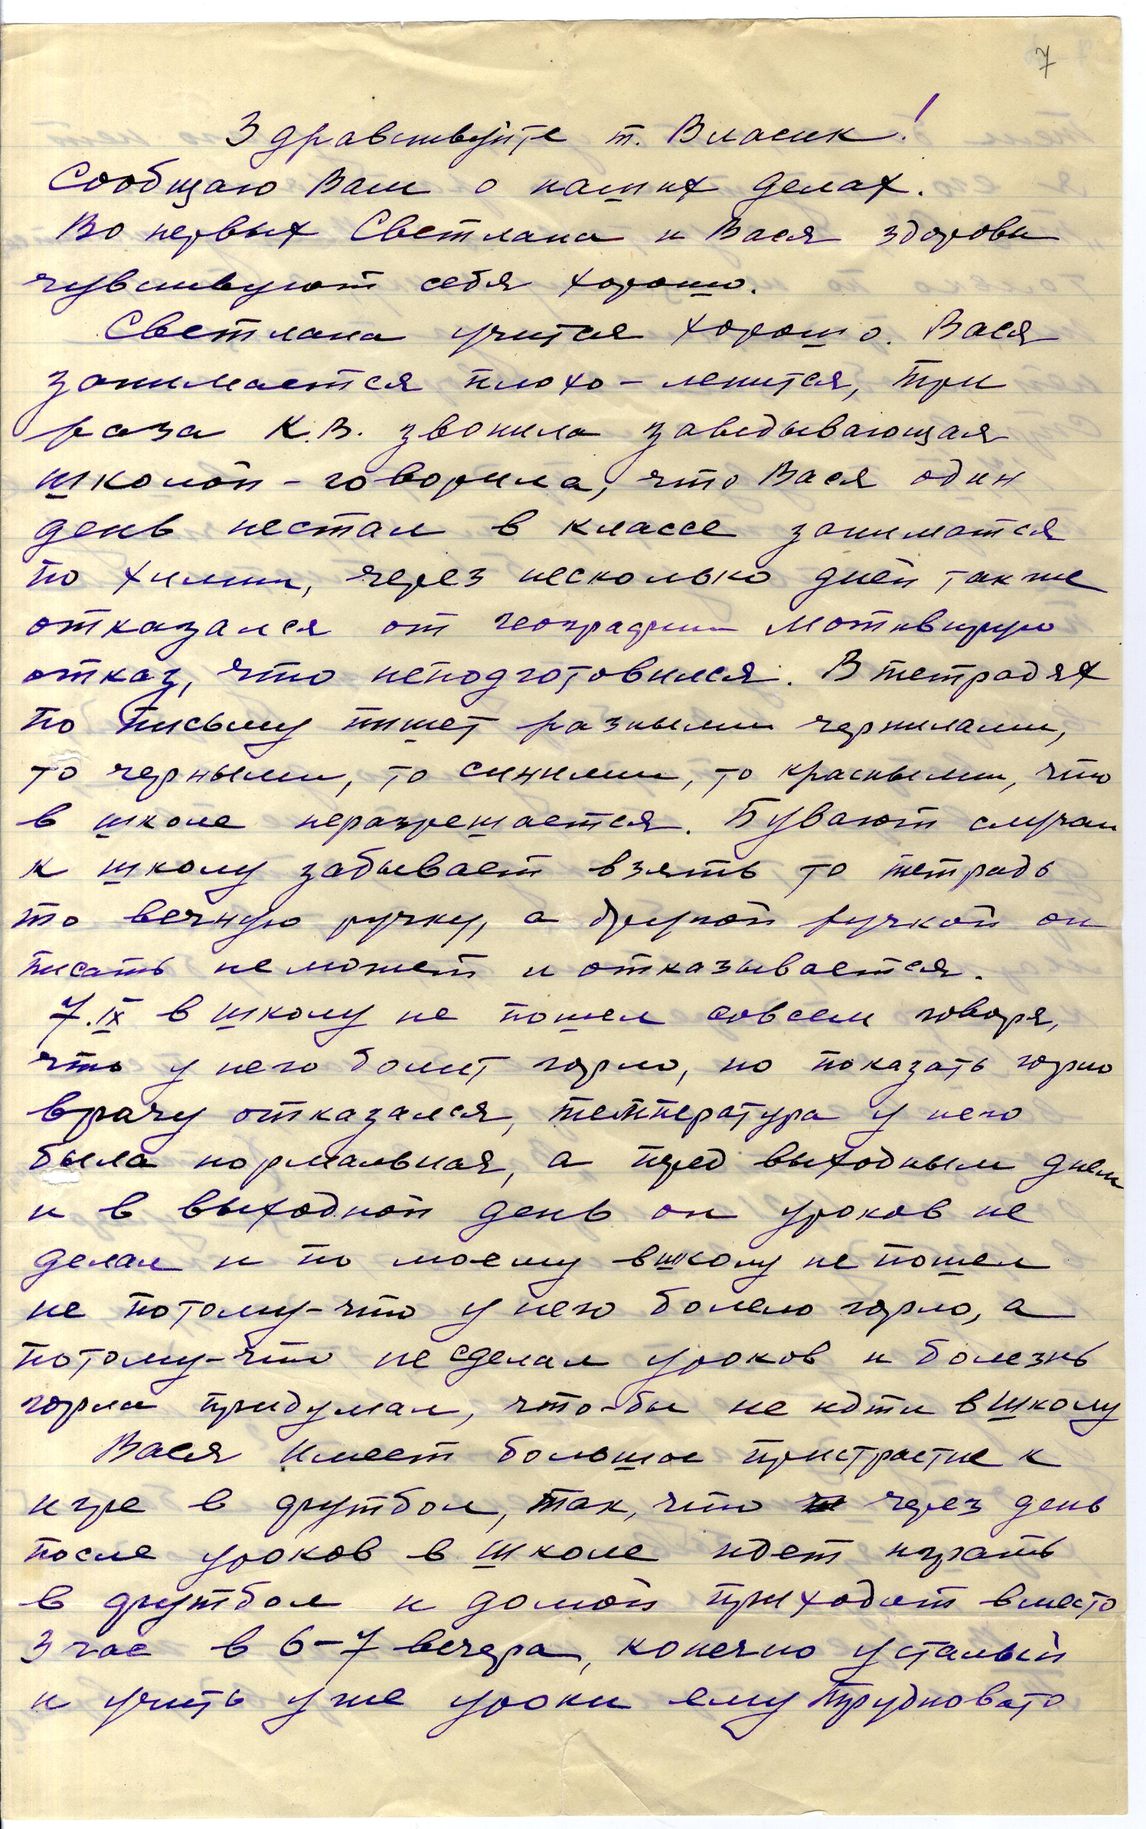 7
Здравствуйте т. Власик!
Сообщаю Вам о наших делах.
Во первых Светлана и Вася здоровы
чувствуют себя хорошо.
Светлана учится хорошо. Вася
занимается плохо – ленится, три
раза К.В. звонила заведывающая
школой – говорила, что Вася один
день нестал в классе заниматся
по химии, через несколько дней также
отказался от географии мотивируя
отказ, что неподготовился. В тетрадях
по письму пишет разными чернилами,
то черными, то синими, то красными, что
в школе неразрешается. Бувают случаи
к школу забывает взять то тетрадь
то вечную ручку, а другой ручкой он
писать неможет и отказывается.
7.IX в школу не пошел совсем говоря,
что у него болит горло, но показать горло
врачу отказался, температура у него
была нормальная, а пред выходным днем
и в выходной день он уроков не
делал и по моему вшколу не пошел
не потому-что у него болело горло, а
потому-что не сделал уроков и болезнь
горла придумал, что-бы не идти в школу
Вася имеет большое пристрастие к
игре в футбол, так, что через день
после уроков в школе идет играть
в футбол и домой приходит вместо
3 час в 6–7 вечера, конечно усталый
и учить уже уроки ему трудновато